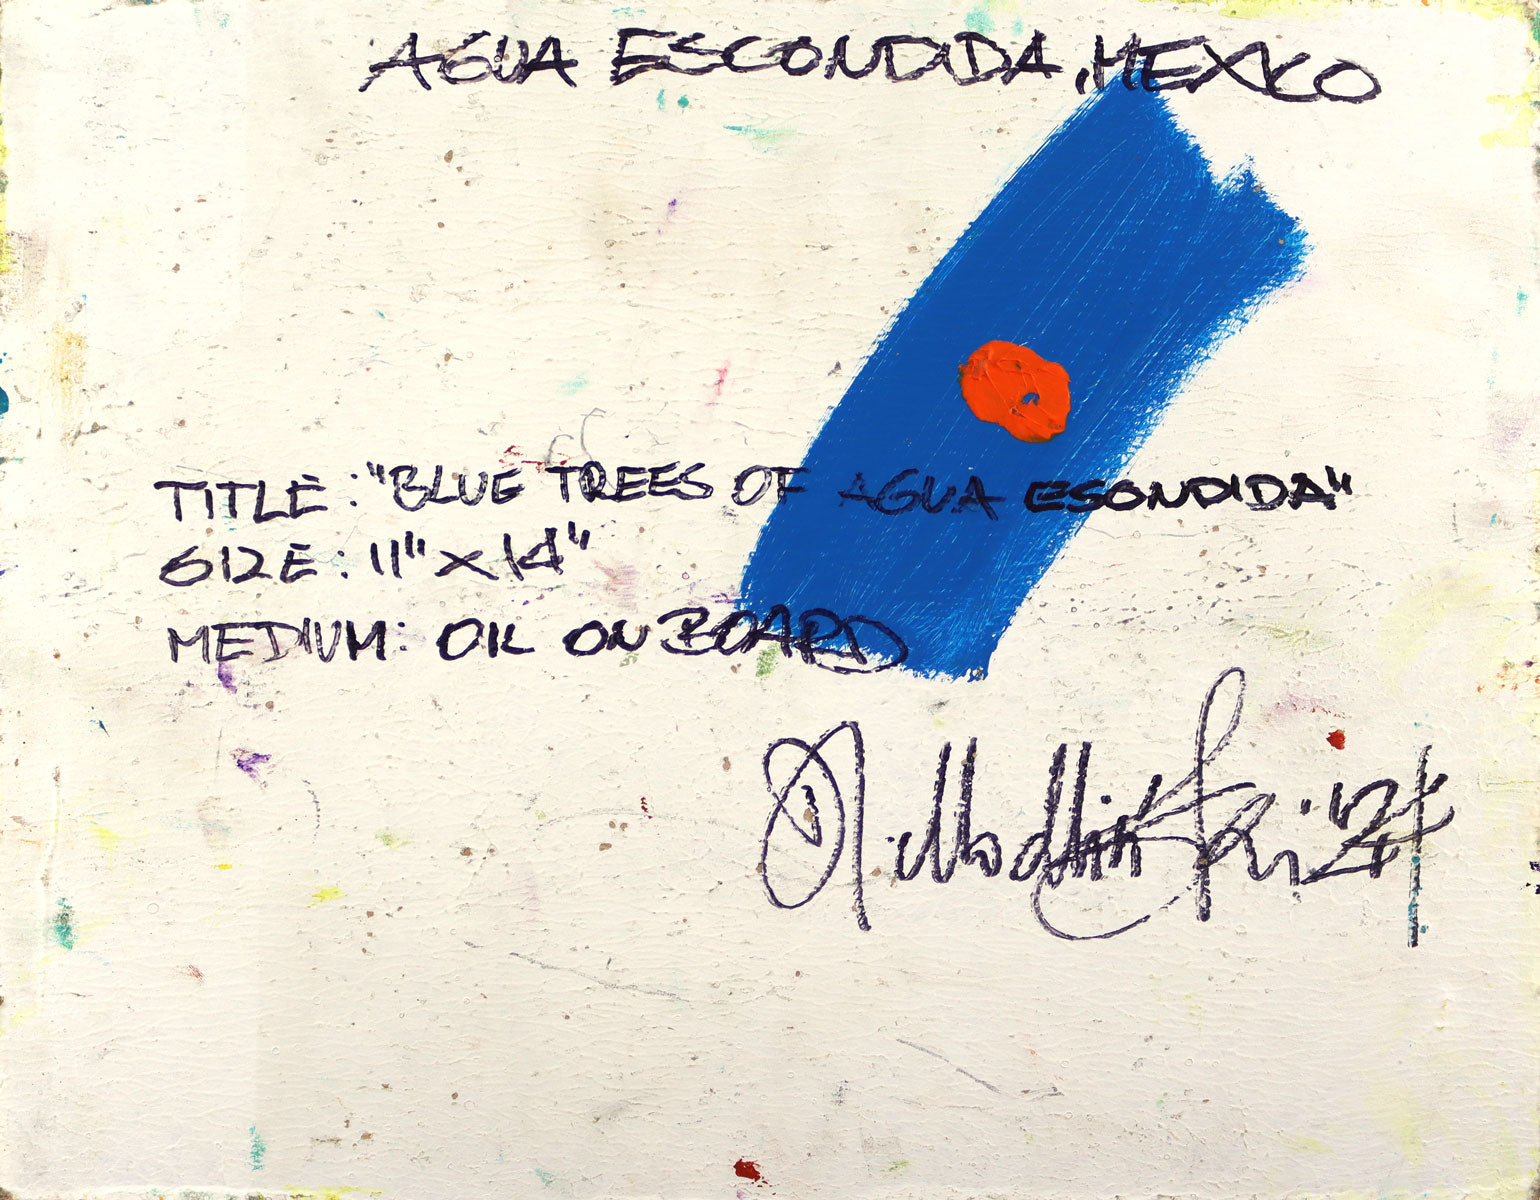 AGUA ESCONDIDA, MEXICO
TITLE: "BLUE TREES OF AGUA ESONDIDA"
SIZE: 11" X 14"
MEDIUM: OIL ON BOARD
'24